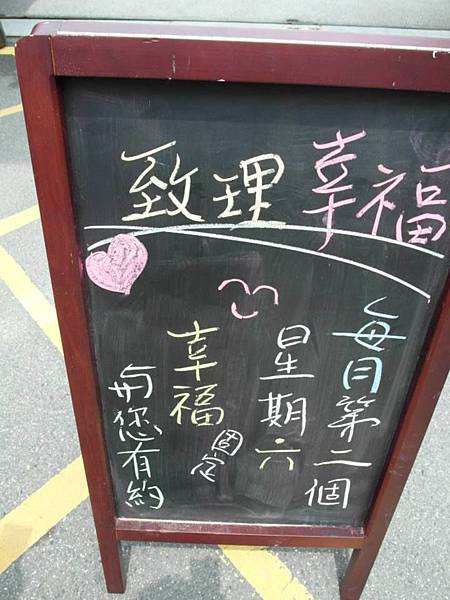 致理幸福
每月第二個
星期六
幸福
固定
與您有約